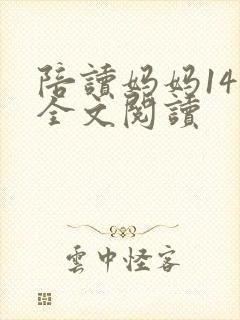 陪讀妈妈14
全文閱讀
雲中怪客